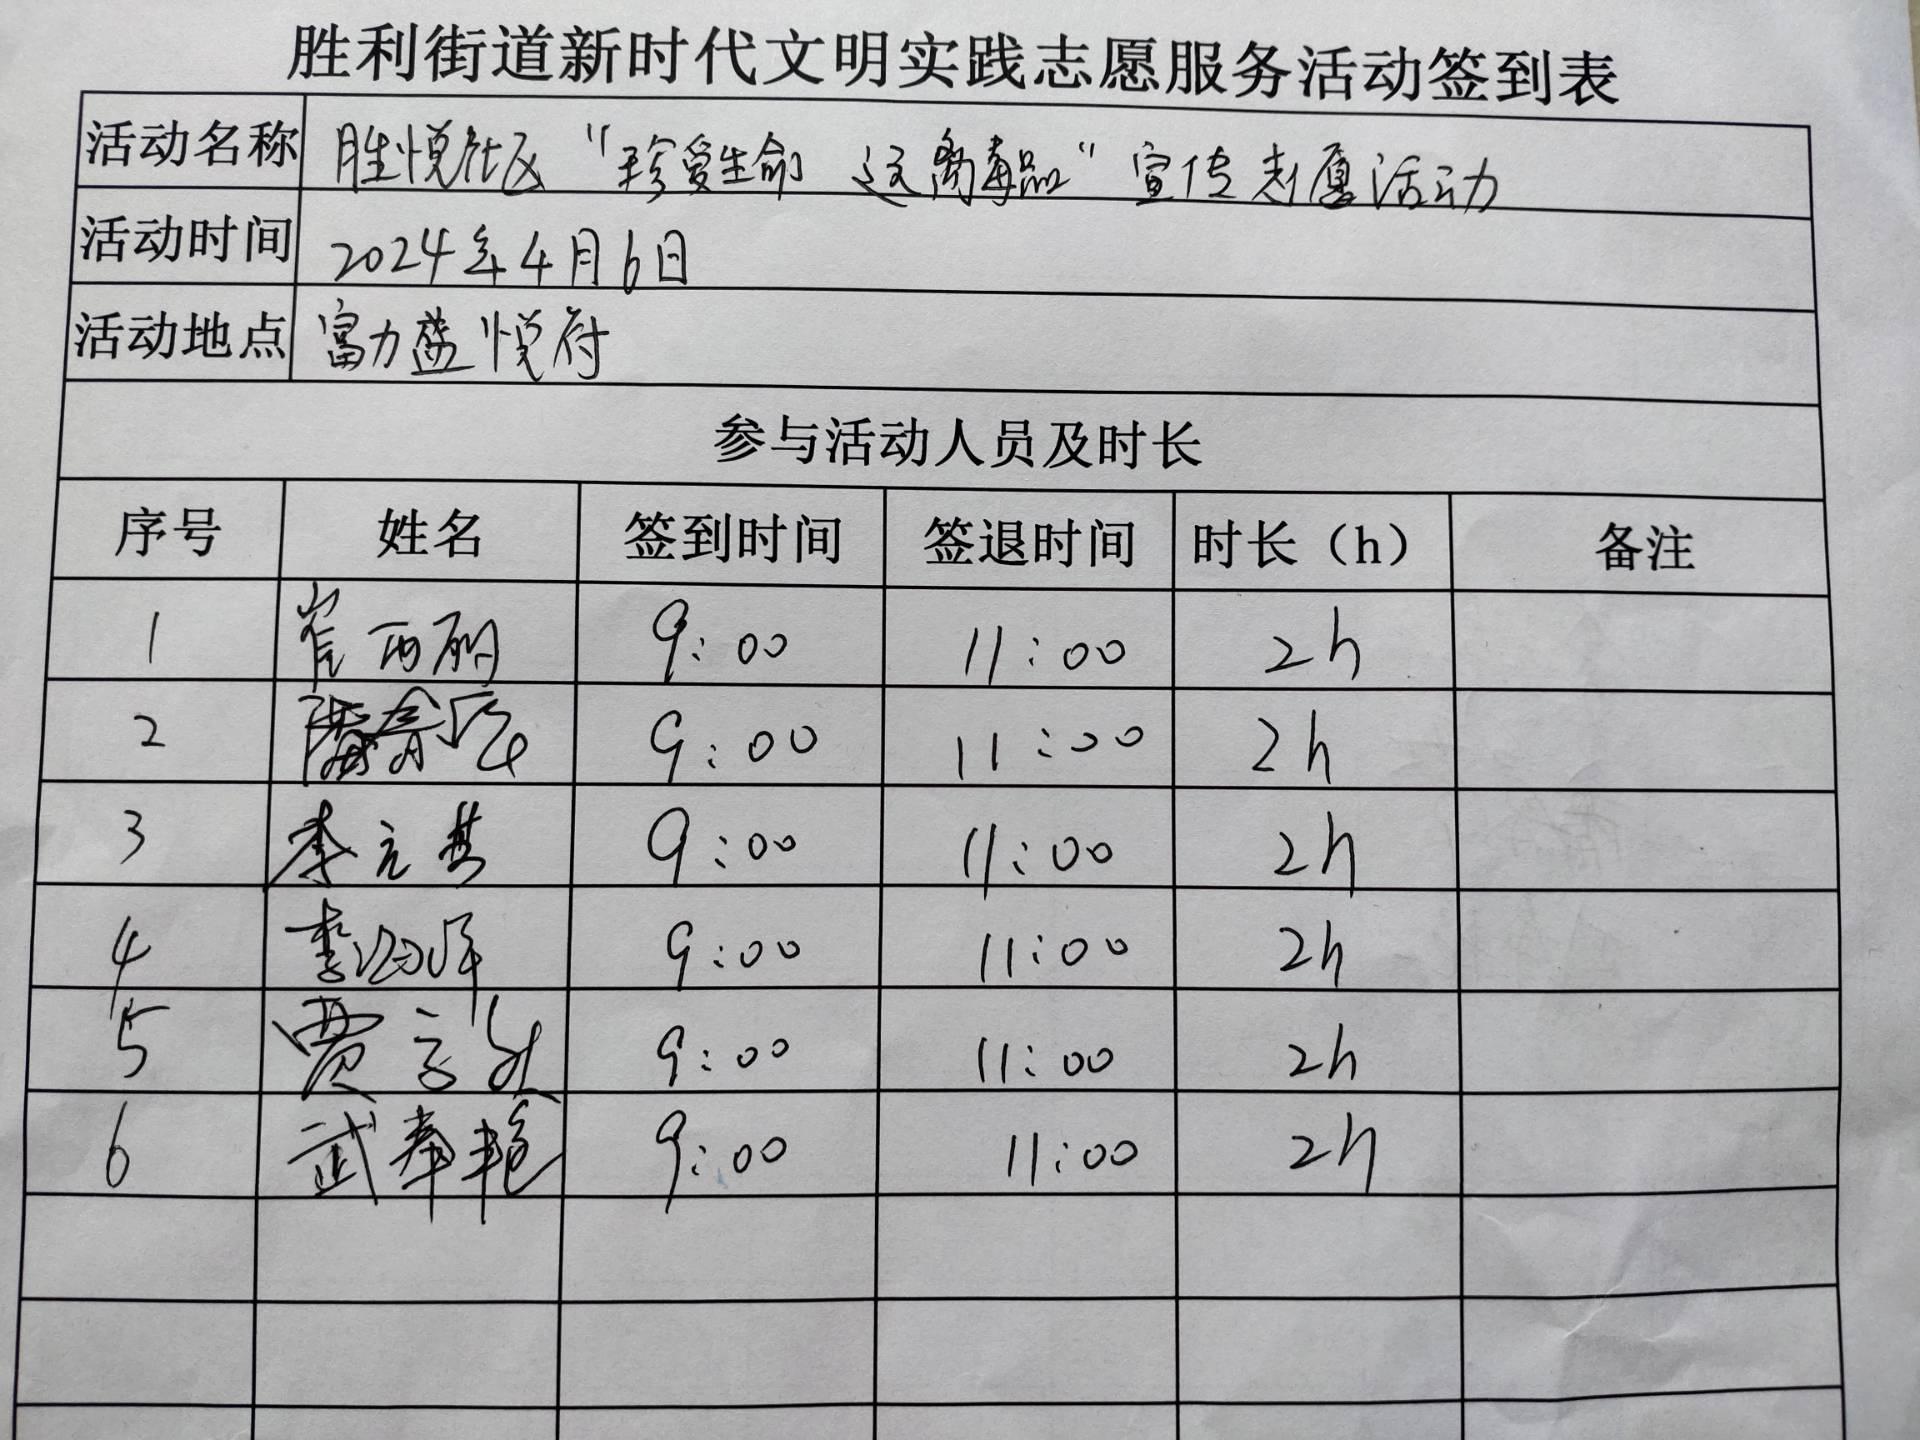 胜利街道新时代文明实践志愿服务活动签到表
活动名称 胜悦社区“珍爱生命 远离毒品”宣传志愿活动
活动时间 2024年4月6日
活动地点 富力盛悦府
参与活动人员及时长
序号 姓名 签到时间 签退时间 时长（h） 备注
1 崔西丽 9:00 11:00 2h
2 9:00 11:00 2h
3 李元基 9:00 11:00 2h
4 李 9:00 11:00 2h
5 贾 9:00 11:00 2h
6 武奉艳 9:00 11:00 2h